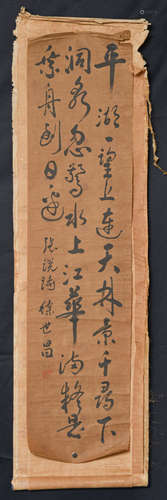 平湖一望上連天林景千尋下
洞泉忽驚水上江華滿疑是
乘舟到日邊
張說詩 徐世昌